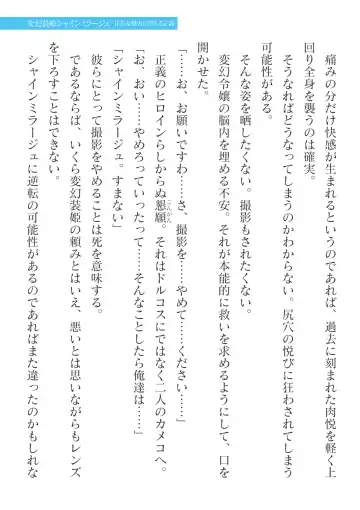 変幻装姫シャインミラージュ
痛みの分だけ快感が生まれるというのであれば、過去に刻まれた肉悦を軽く上
回り全身を襲うのは確実。
そうなればどうなってしまうのかわからない。尻穴の悦びに狂わされてしまう
可能性がある。
そんな姿を晒したくない。撮影もされたくない。
変幻令嬢の脳内を埋める不安。それが本能的に救いを求めるように、口を
開かせた。
「お……、お願いですわ……さ、撮影を……やめて……ください……」
正義のヒロインらしからぬ懇願。それはドルコスにではなく二人のカメコへ。
こんがん
「お、おい……やめろっていったって……そんなことしたら俺達は……」
「シャインミラージュ。すまない」
彼らにとって撮影をやめることは死を意味する。
であるならば、いくら変幻装姫の頼みとはいえ、悪いとは思いながらもレンズ
を下ろすことはできない。
シャインミラージュに逆転の可能性があるのであればまた違ったのかもしれな